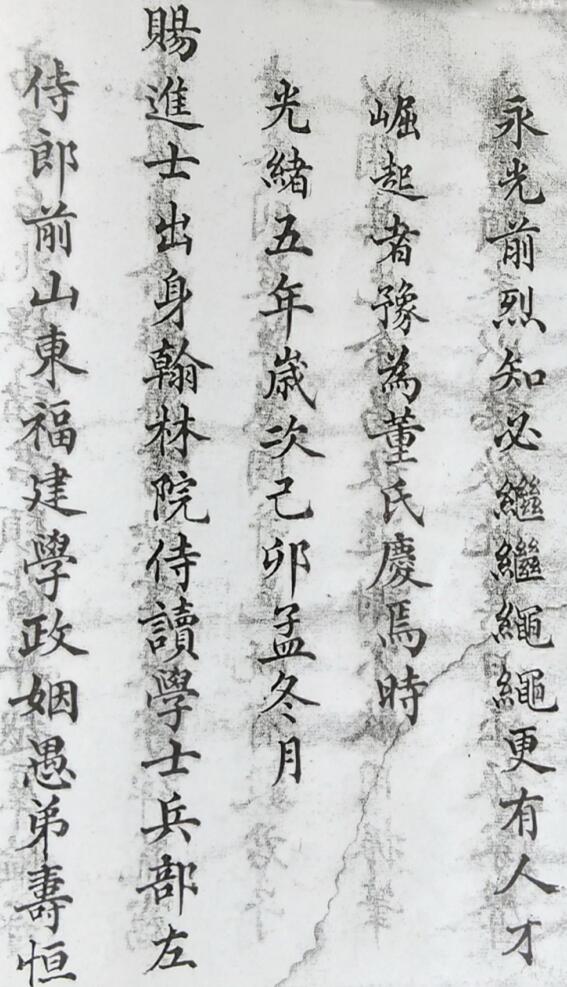 永光前烈知必繼繼繩繩更有人才
崛起者豫為董氏慶焉時
光緒五年歲次己卯孟冬月
賜進士出身翰林院侍讀學士兵部左
侍郎前山東福建學政姻愚弟壽恒